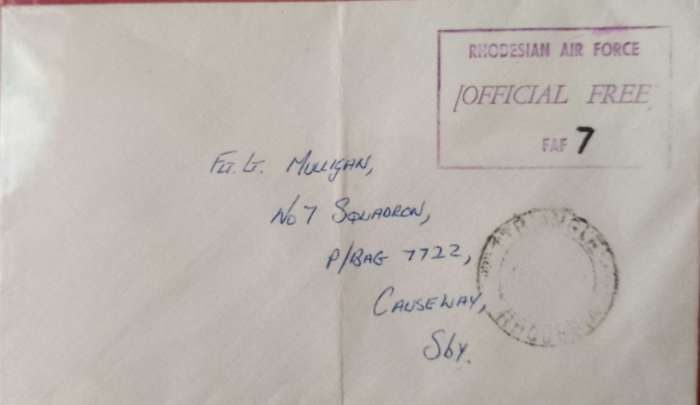 RHODESIAN AIR FORCE
OFFICIAL FREE
FAF 7
FLT. LT. MULLIGAN,
No 7 SQUADRON,
P/BAG 7722,
CAUSEWAY,
Sby.
TRIANGLE
RHODESIA